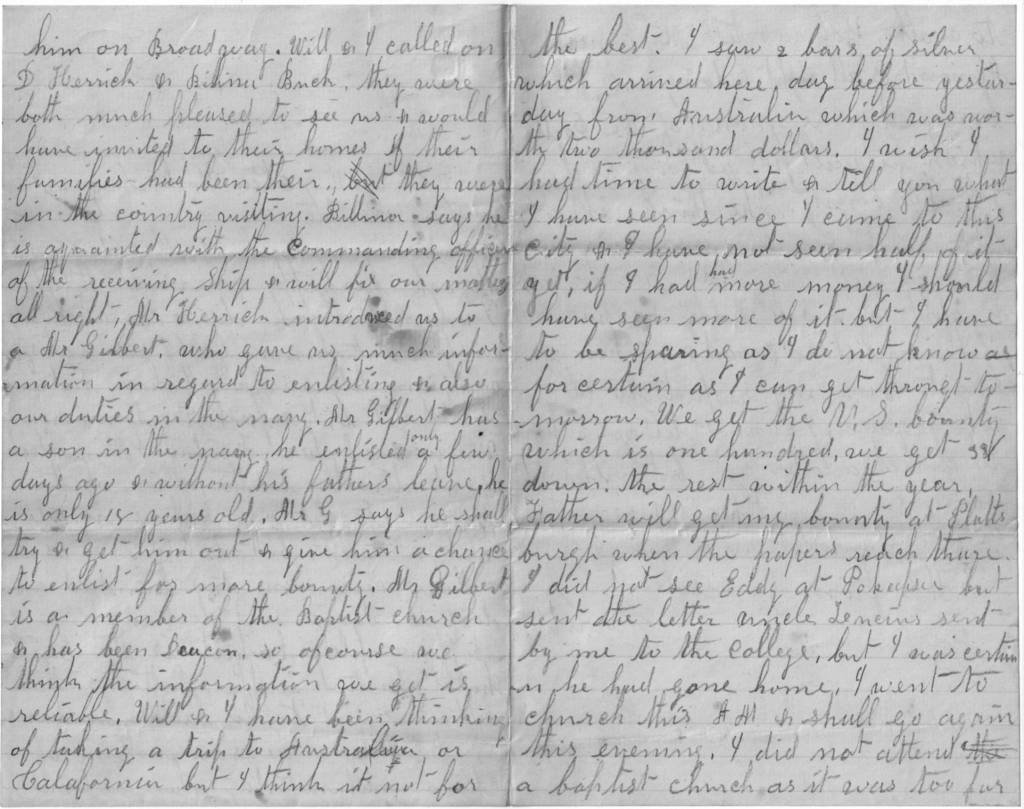 him on Broadway. Will & I called on
D Herrick & Billina Buck, they were
both much pleased to see us & would
have invited to their homes if their
families had been their, but they were
in the country visiting. Billina says he
is aquainted with the commanding officer
of the receiving ship & will fix our matters
all right, Mr Herrick introduced us to
a Mr Gilbert, who gave us much infor-
mation in regard to enlisting & also
our duties in the navy. Mr Gilbert has
a son in the navy he enlisted only a few
days ago & without his fathers leave, he
is only 18 years old. Mr G says he shall
try & get him out & give him a chance
to enlist for more bounty. Mr Gilbert
is a member of the Baptist church
& has been Deacon, so ofcourse we
think the information we get is
reliable. Will & I have been thinking
of taking a trip to Australia or
Calafornia but I think it not for
the best. I saw 2 bars of silver
which arrived here day before yester-
day from Australia which was wor-
th two thousand dollars. I wish I
had time to write & tell you what
I have seen since I came to this
City & I have not seen half of it
yet, if I had had more money I should
have seen more of it but I have
to be sparing as I do not know as
for certain as I can get throught to-
morrow. We get the U.S. bounty
which is one hundred, we get
down. the rest within the year,
Father will get my bounty at Platts
burgh when the papers reach there.
I did not see Eddy at Pokepsie but
sent the letter uncle sent
by me to the College, but I was certain
he had gone home, I went to
church this A M & shall go again
this evening. I did not attend the
a baptist church as it was too far